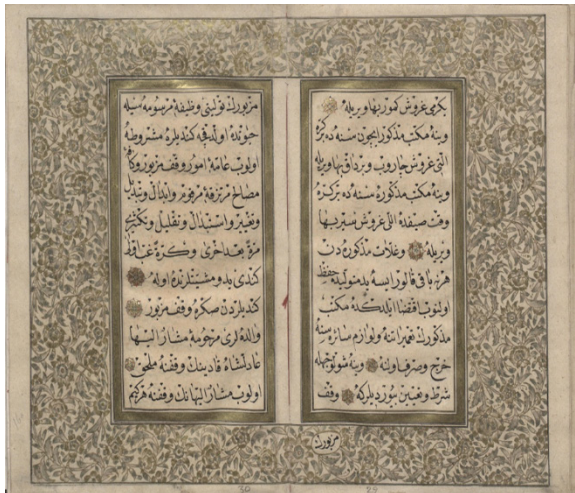 یکرمی غروش کموربها ویریله
وینه مکتب مذکور ایچون سنه ده بر کره
التی غروش جاروب وبرداق بها ویریله
وینه مکتب مذکوره سنه ده بر کره
وقت صیفده اللی غروش سیر بها
ویریله وغلات مذکوره دن
هر نه باقی قالور ایسه ید متولیده حفظ
اولنوب اقتضا ایلدکده مکتب
مذکورک تعمیراتنه ولوازم سائره سنه
خرج وصرف اولنه وینه شویله جه
شرط وتعیین بیوردیلرکه وقف
مزبورک
مزبورک تولیتی وظیفۀ مرسومه سیله
حیاتده اولدقجه کندیلره مشروطه
اولوب عامۀ امور وقف مزبور وکافۀ
مصالح مرتزقۀ مرقوم وابدال وتبدیل
وتغییر واستبدال وتقلیل وتکثیر
مرة بعد اخری وکرة غب
کندی ید ومشیتلرنده اوله
کندیلردن صکره وقف مزبور
والده لری مرحومه مشار الیها
عادلشاه قادینک وقفنه ملحق
اولوب مشار الیهانک وقفنه هر کیم